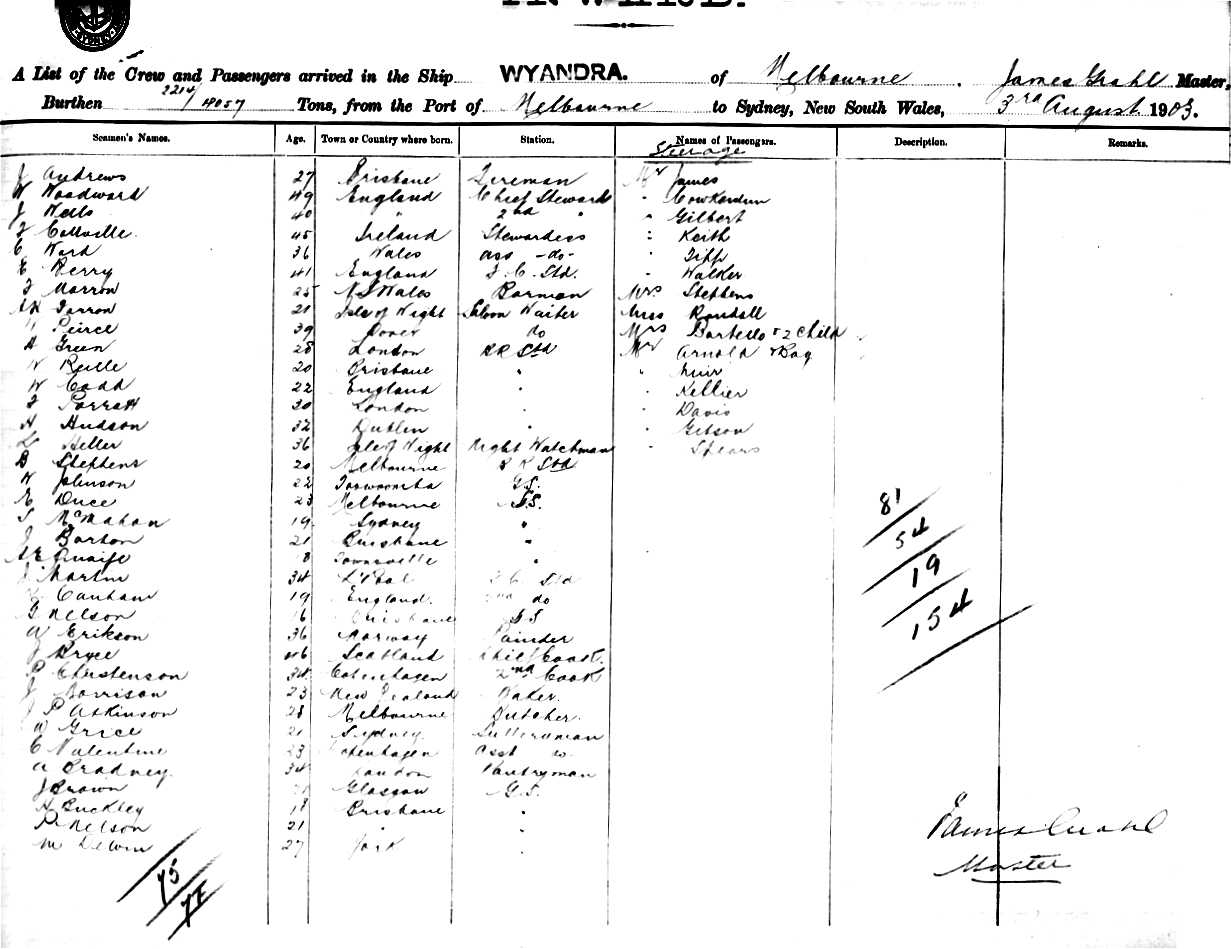 SYDNEY
INWARD.
A List of the Crew and Passengers arrived in the Ship WYANDRA. of Melbourne. James Grahl Master,
Burthen 2214/4057 Tons, from the Port of Melbourne to Sydney, New South Wales, 3rd August 1903.
Seamen's Names. Age. Town or Country where born. Station. Names of Passengers. Description. Remarks.
Steerage
J Andrews 27 Brisbane Fireman Mr James
W Woodward 49 England Chief Steward "
J Wells 40 " 2nd " " Gilbert
45 Ireland Stewardess " Keith
C Ward 36 Wales ass -do- " Tipp
E Berry 41 England F.C. Std. " Walker
F Marron 25 N S Wales Barman Mrs Stephens
Farron 21 Isle of Wight Saloon Waiter Miss Randall
Peirce 39 Dover do Mrs Bartello & 2 Child
A Green 28 London RR Std Mr Arnold & Boy
20 Brisbane " " Muir
W Codd 22 England " " Kellier
F Parratt 30 London " " Davis
H Hudson 32 Dublin " " Gibson
Heller 36 Isle of Wight Night Watchman " Spears
B Stephens 20 Melbourne R R Std
W Johnson 22 Toowoomba G.S.
E Duce 23 Melbourne G.S.
S McMahon 19 Sydney "
J Barton 21 Brisbane "
Quaife 18 Townsville "
J Martin 34 L'Pool F C Std
Canham 19 England. 2nd do
G Nelson 16 Brisbane GS
A Erikson 36 Norway
J Bryce 46 Scotland Chief Cook.
P Christenson 34 Copenhagen 2nd Cook
J Morrison 23 New Zealand Baker.
J P Atkinson 28 Melbourne Butcher.
W Grice 21 Sydney
C Valentine 23 Copenhagen Asst do
A Bradney. 34 London Pantryman
J Brown 21 Glasgow G.S.
H Buckley 18 Brisbane "
P Nelson 21 " "
M Delwin 27 York "
81
54
19
154
75
77
James Grahl
Master